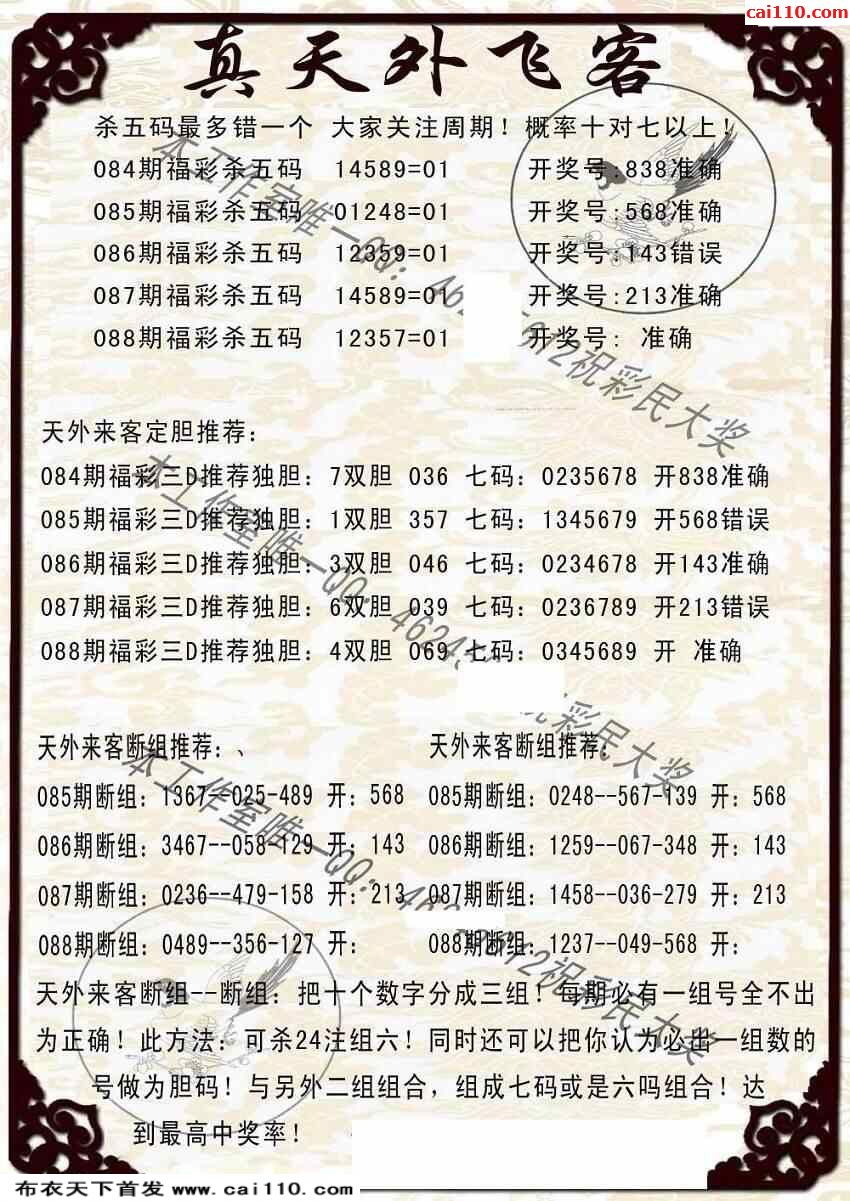 cai110.com
真天外飞客
杀五码最多错一个 大家关注周期！概率十对七以上！
084期福彩杀五码 14589=01 开奖号:838准确
085期福彩杀五码 01248=01 开奖号:568准确
086期福彩杀五码 12359=01 开奖号:143错误
087期福彩杀五码 14589=01 开奖号:213准确
088期福彩杀五码 12357=01 开奖号: 准确
天外来客定胆推荐：
084期福彩三D推荐独胆：7双胆 036 七码：0235678 开838准确
085期福彩三D推荐独胆：1双胆 357 七码：1345679 开568错误
086期福彩三D推荐独胆：3双胆 046 七码：0234678 开143准确
087期福彩三D推荐独胆：6双胆 039 七码：0236789 开213错误
088期福彩三D推荐独胆：4双胆 069 七码：0345689 开 准确
天外来客断组推荐：、 天外来客断组推荐：
085期断组：1367--025-489 开：568 085期断组：0248--567-139 开：568
086期断组：3467--058-129 开：143 086期断组：1259--067-348 开：143
087期断组：0236--479-158 开：213 087期断组：1458--036-279 开：213
088期断组：0489--356-127 开： 088期断组：1237--049-568 开：
天外来客断组--断组：把十个数字分成三组！每期必有一组号全不出
为正确！此方法：可杀24注组六！同时还可以把你认为必出一组数的
号做为胆码！与另外二组组合，组成七码或是六吗组合！达
到最高中奖率！
本工作室唯一QQ：
祝彩民大奖
本工作室唯一QQ：
祝彩民大奖
本工作室唯一QQ：
祝彩民大奖
布衣天下首发 www.cai110.com